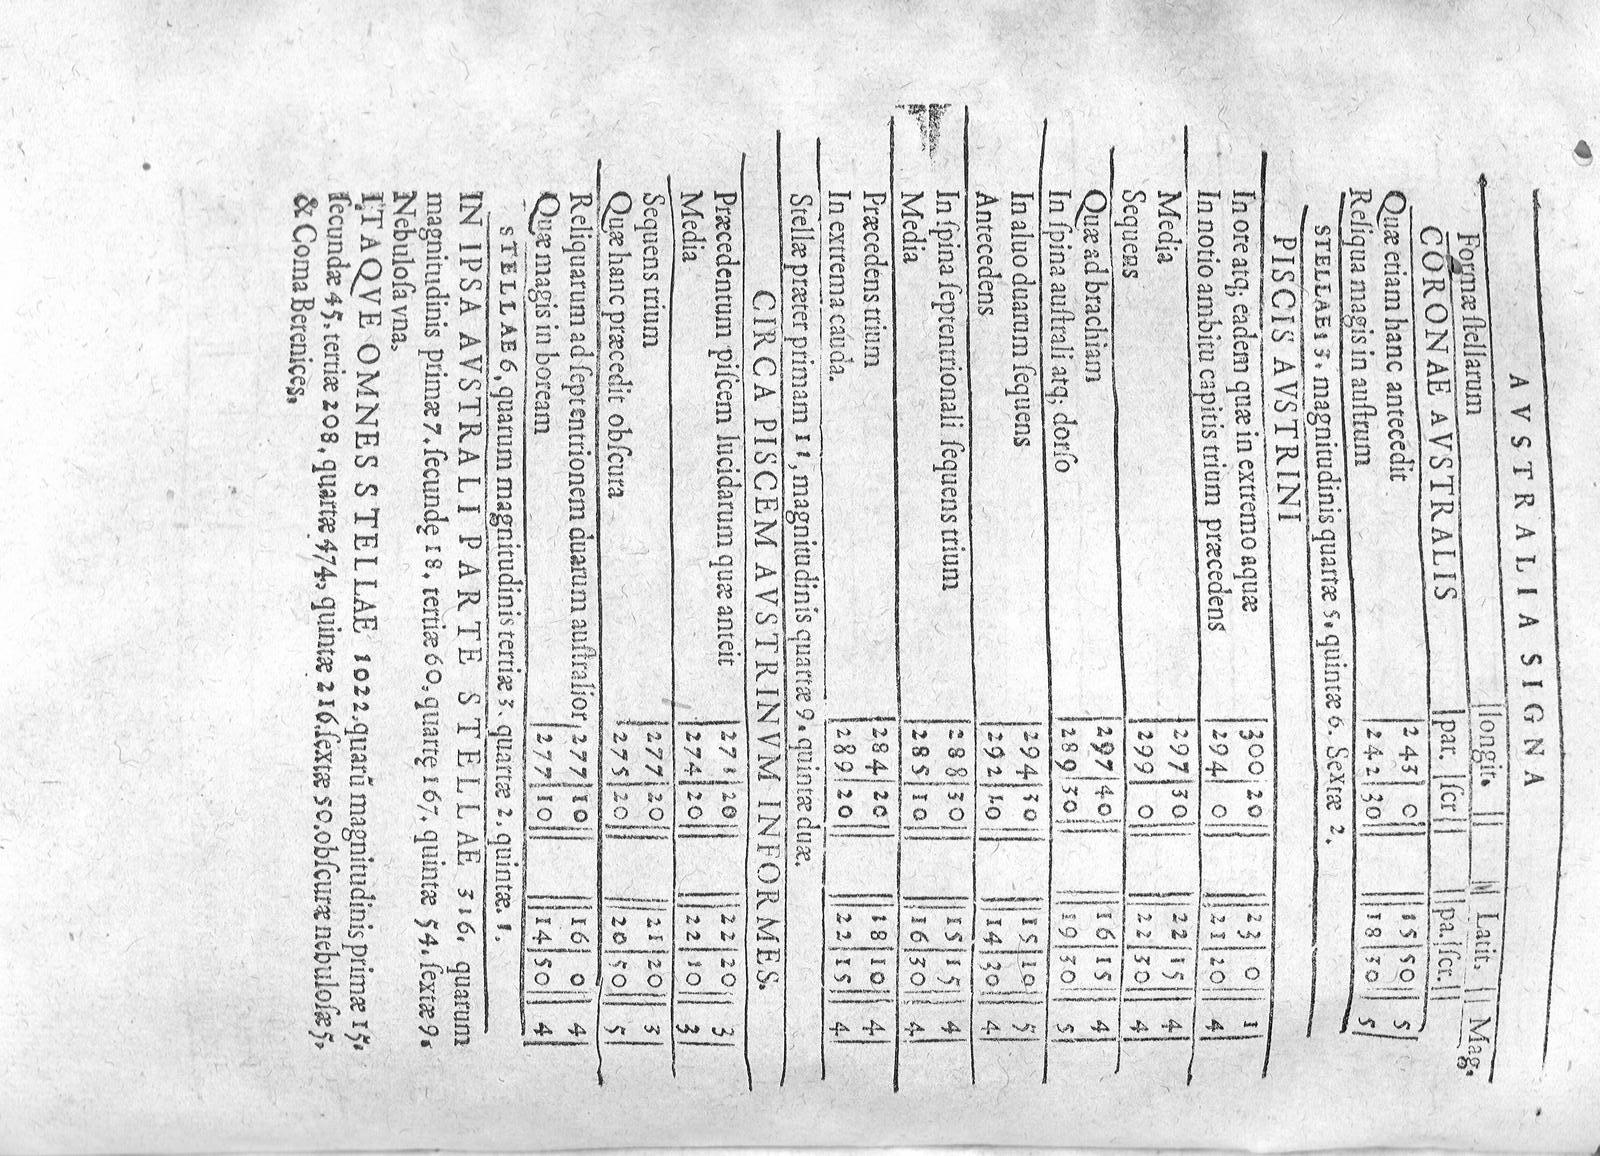 AVSTRALIA SIGNA
Formæ ſtellarum longit. Latit. Mag.
CORONAE AVSTRALIS par. ſcr pa. ſcr.
Quæ etiam hanc antecedit 243 0 15 50 5
Reliqua magis in auſtrum 242 30 18 30 5
STELLAE 13. magnitudinis quartæ 5. quintæ 6. Sextæ 2.
PISCIS AVSTRINI
In ore atq; eadem quæ in extremo aquæ 300 20 23 0 1
In notio ambitu capitis trium præcedens 294 0 21 20 4
Media 297 30 22 15 4
Sequens 299 0 22 30 4
Quæ ad brachiam 297 40 16 15 4
In ſpina auſtrali atq; dorſo 289 30 19 30 5
In aluo duarum ſequens 294 30 15 10 5
Antecedens 292 10 14 30 4
In ſpina ſeptentrionali ſequens trium 288 30 15 15 4
Media 285 10 16 30 4
Præcedens trium 284 20 18 10 4
In extrema cauda. 289 20 22 15 4
Stellæ præter primam 11, magnitudinis quartæ 9. quintæ duæ.
CIRCA PISCEM AVSTRINVM INFORMES.
Præcedentum piſcem lucidarum quæ anteit 271 20 22 20 3
Media 274 20 22 10 3
Sequens trium 277 20 21 20 3
Quæ hanc præcedit obſcura 275 20 20 50 5
Reliquarum ad ſeptentrionem duarum auſtralior 277 10 16 0 4
Quæ magis in boream 277 10 14 50 4
STELLAE 6, quarum magnitudinis tertiæ 3. quartæ 2, quintæ. 1.
IN IPSA AVSTRALI PARTE STELLAE 316. quarum
magnitudinis primæ 7. ſecundę 18. tertiæ 60, quartę 167. quintæ 54. ſextæ 9.
Nebuloſa vna.
ITAQVE OMNES STELLAE 1022. quarũ magnitudinis primæ 15.
ſecundæ 45. tertiæ 208. quartæ 474, quintæ 216. ſextæ 50. obſcuræ nebuloſæ 5.
& Coma Berenices.